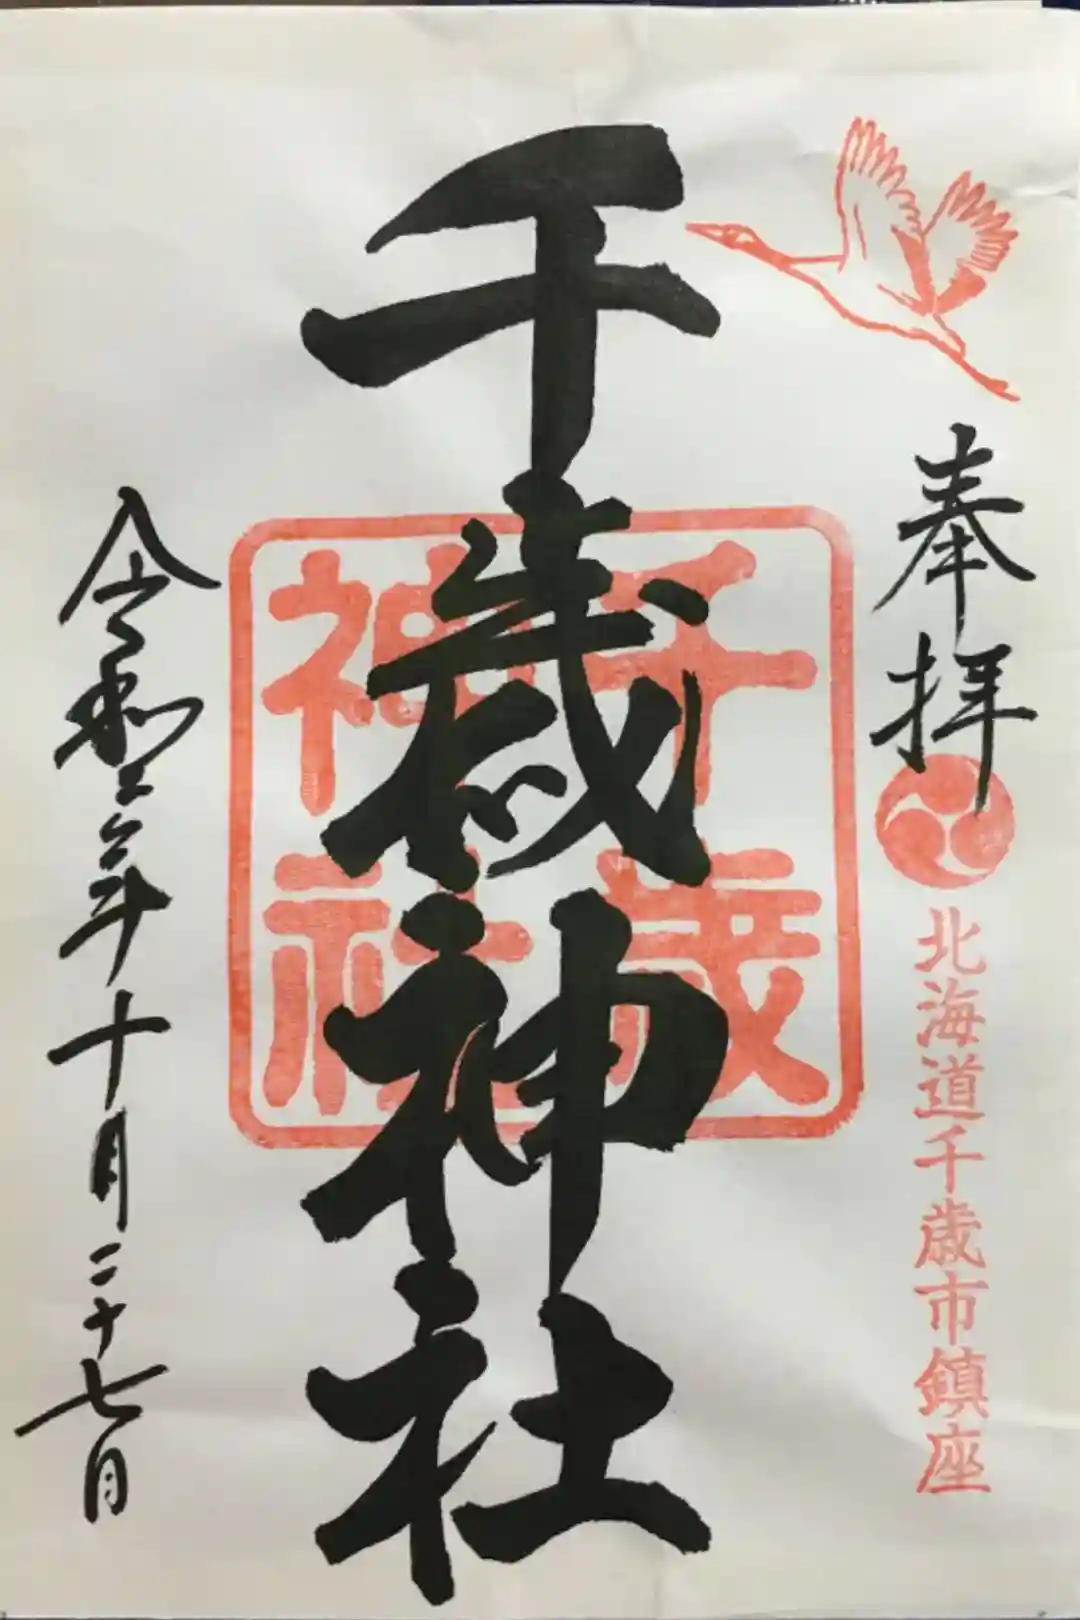 奉拝
北海道千歳市鎮座
千歳神社
千歳
神社
令和年十月二十七日